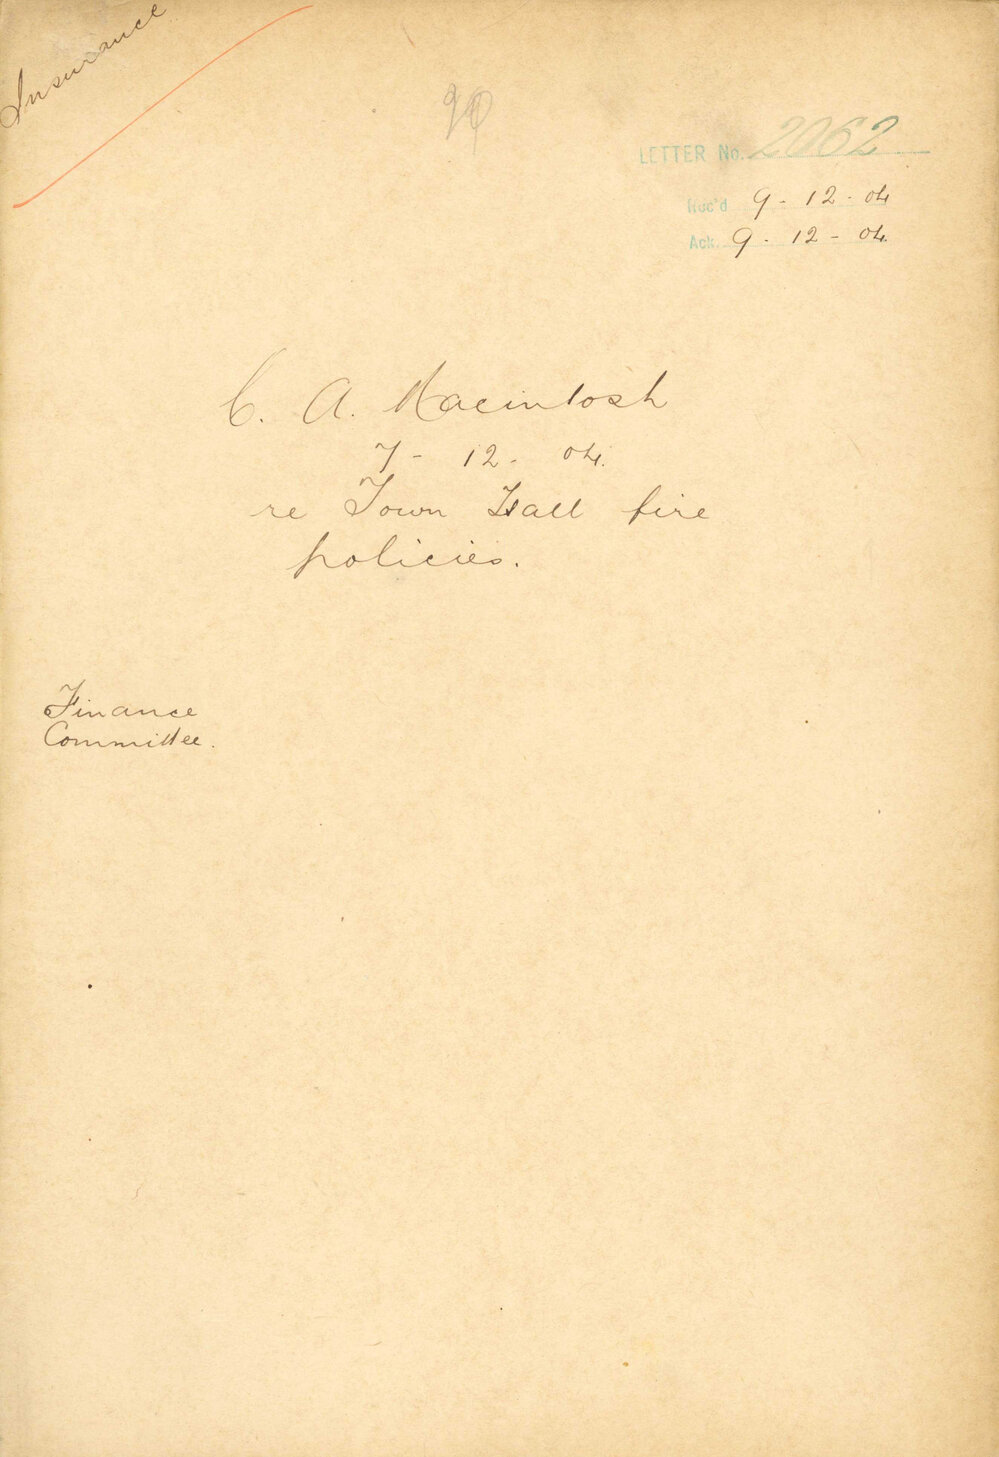 Insurance
LETTER No. 2062
Rec'd 9 - 12 - 04
Ack. 9 - 12 - 04.
C. A. Macintosh
7 - 12 - 04.
re Town Hall fire
policies.
Finance
Committee.